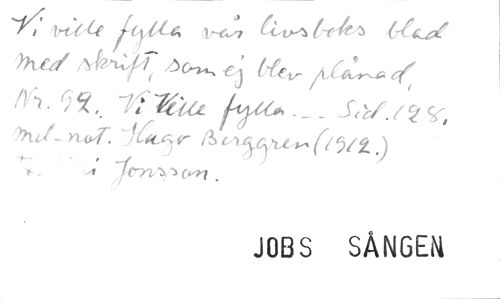 Vi ville fylla vår livsboks blad
med skrift, som ej blev plånad,
Nr. 92. Vi Ville fylla... Sid. 128.
mel-not. Hugo Berggren (1912.)
Jonsson.
JOBS SÅNGEN